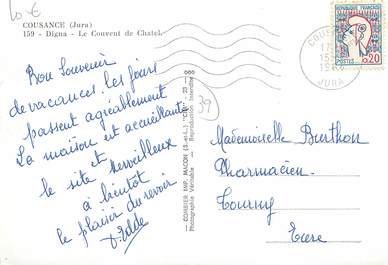 10 €
COUSANCE (Jura)
159 - Digna - Le Couvent de Chatel
Bon Souvenir
de vacances. les jours
passent agréablement
La maison est accueillante
et
le site merveilleux
à bientôt
le plaisir du revoir
COMBIER IMP. MACON (S.-et-L.) "CIM"
Photographie Véritable - Reproduction Interdite
39
REPUBLIQUE FRANÇAISE
POSTES 0,20
JURA
Mademoiselle Berthon
Pharmacien
Tourny
Eure